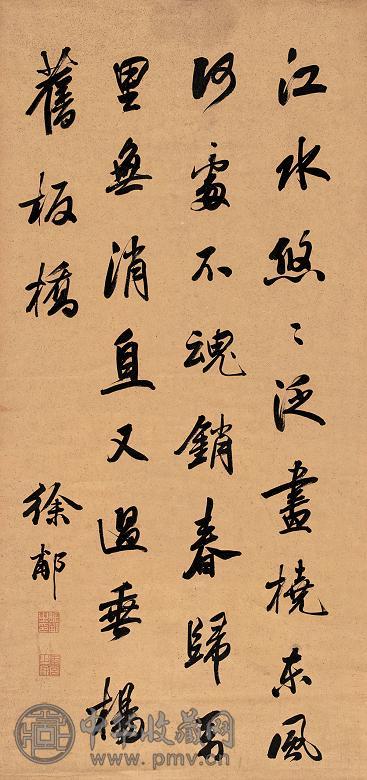 江水悠〻泛畫橈東風
何處不魂銷春歸萬
里無消息又過垂楊
舊板橋
徐郙
中拍收藏网
www.pmv.cn